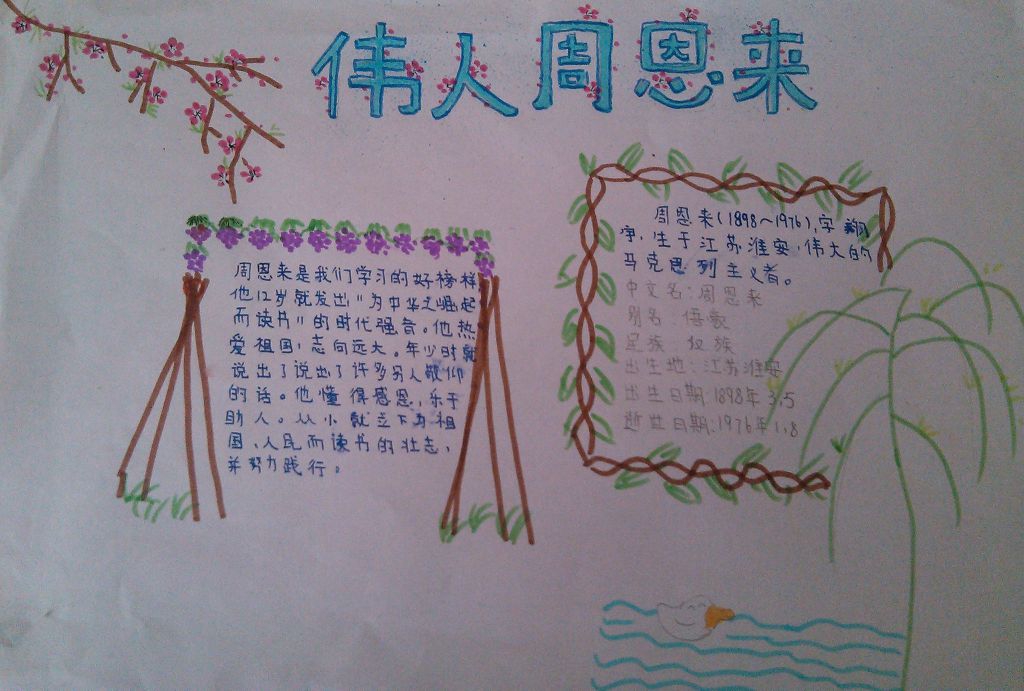 伟人周恩来
周恩来是我们学习的好榜样
他12岁就发出"为中华之崛起
而读书"的时代强音。他热
爱祖国,志向远大。年少时就
说出了说出了许多另人敬仰
的话。他懂得感恩,乐于
助人。从小就立下为祖
国、人民而读书的壮志,
并努力践行。
周恩来(1898~1976),字翔
宇,生于江苏淮安,伟大的
马克思列主义者。
中文名:周恩来
别名 伍豪
民族 汉族
出生地:江苏淮安
出生日期:1898年3.5
逝世日期:1976年1.8